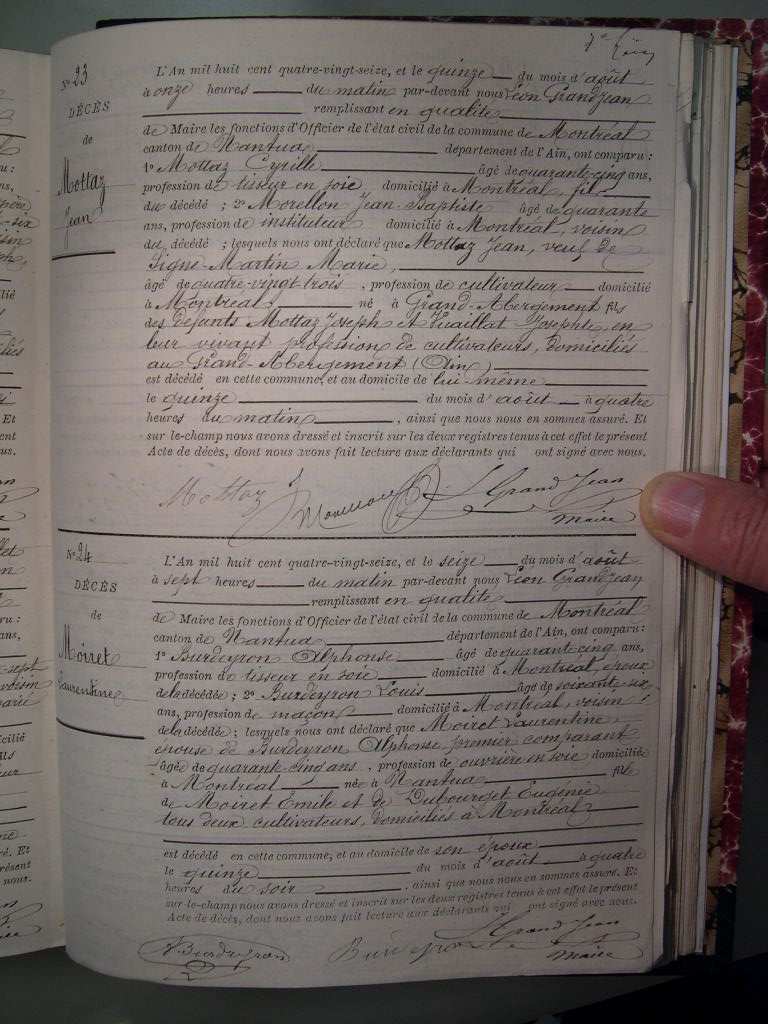 N° 23
DÉCÈS
de
Mottaz
Jean
L'An mil huit cent quatre-vingt-seize, et le quinze du mois d'août
à onze heures du matin par-devant nous Léon Grandjean
remplissant en qualité
de Maire les fonctions d'Officier de l'état civil de la commune de Montréal
canton de Nantua département de l'Ain, ont comparu :
1° Mottaz Cyrille âgé de quarante-cinq ans,
profession de tisseur en soie domicilié à Montréal, fils
du décédé ; 2° Morellon Jean-Baptiste âgé de quarante
ans, profession de instituteur domicilié à Montréal, voisin
du décédé ; lesquels nous ont déclaré que Mottaz Jean, veuf de
Marie,
âgé de quatre-vingt-trois , profession de cultivateur domicilié
à Montréal né à Grand-Abergement fils
des défunts Mottaz Joseph et Vuaillat Josephte, en
leur vivant profession de cultivateurs, domiciliés
au Grand-Abergement (Ain)
est décédé en cette commune, et au domicile de lui-même
le quinze du mois d'août à quatre
heures du matin , ainsi que nous nous en sommes assuré. Et
sur-le-champ nous avons dressé et inscrit sur les deux registres tenus à cet effet le présent
Acte de décès, dont nous avons fait lecture aux déclarants qui ont signé avec nous.
Mottaz Grand Jean
Maire
N° 24
DÉCÈS
de
Moiret
Laurentine
L'An mil huit cent quatre-vingt-seize, et le seize du mois d'août
à sept heures du matin par-devant nous Léon Grandjean
remplissant en qualité
de Maire les fonctions d'Officier de l'état civil de la commune de Montréal
canton de Nantua département de l'Ain, ont comparu :
1° Burdeyron Alphonse âgé de quarante-cinq ans,
profession de tisseur en soie domicilié à Montréal époux
de la décédée ; 2° Burdeyron Louis âgé de soixante-six
ans, profession de maçon domicilié à Montréal, voisin
de la décédée ; lesquels nous ont déclaré que Moiret Laurentine
épouse de Burdeyron Alphonse premier comparant
âgée de quarante-cinq ans , profession de ouvrière en soie domiciliée
à Montréal née à Nantua fille
de Moiret Emile et de Dubourget Eugénie
tous deux cultivateurs, domiciliés à Montréal
est décédé en cette commune, et au domicile de son époux
le quinze du mois d'août à quatre
heures du soir , ainsi que nous nous en sommes assuré. Et
sur-le-champ nous avons dressé et inscrit sur les deux registres tenus à cet effet le présent
Acte de décès, dont nous avons fait lecture aux déclarants qui ont signé avec nous.
A Burdeyron Grand Jean
Maire